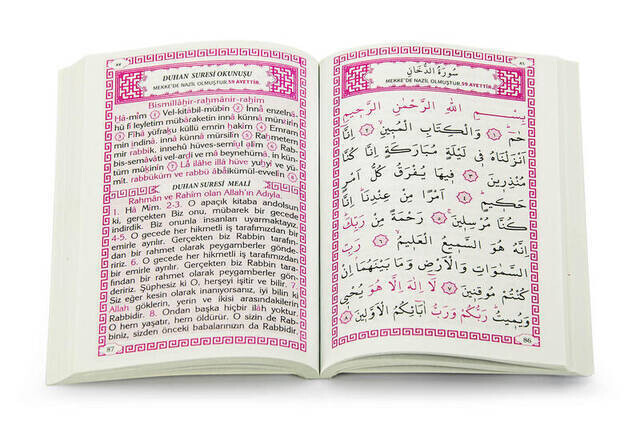 DUHAN SURESİ OKUNUŞU
MEKKE'DE NAZİL OLMUŞTUR, 59 AYETTİR.
Bismillâhir-raḥmânir-raḥîm
Hâ-mîm ① Vel-kitâbil-mübîn ② İnnâ enzelnâ-
hü fî leyletim mübâraketin innâ künnâ münzirîn
③ Fîhâ yüfraḳu küllü emrin ḥakîm ④ Emram
min ındinâ, innâ künnâ mürsilîn ⑤ Raḥmetem
mir rabbik, innehû hüves-semîul alîm ⑥ Rab-
bis-semâvâti vel-arḍı ve mâ beynehümâ, in kün-
tüm mûḳinîn ⑦ Lâ ilâhe illâ hüve yuḥyî ve yü-
mît, rabbüküm ve rabbü âbâikümül-evvelîn ⑧
DUHAN SURESİ MEALİ
Rahmân ve Rahîm olan Allah'ın Adıyla.
1. Hâ Mîm. 2-3. O apaçık kitaba andolsun
ki, gerçekten Biz onu, mübarek bir gecede
indirdik. Biz onunla insanları uyarmaktayız.
4-5. O gecede her hikmetli iş tarafımızdan
bir emirle ayrılır. Gerçekten biz Rabbin tarafın-
dan bir rahmet olarak peygamberler gönde-
ririz. 6. O gecede her hikmetli iş tarafımızdan
bir emirle ayrılır. Gerçekten biz Rabbin tara-
fından bir rahmet olarak peygamberler gön-
deririz. Şüphesiz ki O, herşeyi işitir ve bilir. 7.
Siz eğer kesin olarak inanıyorsanız, iyi bilin ki
Allah göklerin, yerin ve ikisi arasındakilerin
Rabbidir. 8. Ondan başka hiçbir ilâh yoktur.
O hem yaşatır, hem öldürür. O sizin de Rab-
biniz, sizden önceki babalarınızın da Rabbidir.
87
سُورَةُ الدُّخَانِ
MEKKE'DE NAZİL OLMUŞTUR, 59 AYETTİR.
بِسْمِ اللّٰهِ الرَّحْمٰنِ الرَّحِيمِ
حٰمٓ ﴿١﴾ وَالْكِتَابِ الْمُبِينِ ﴿٢﴾ اِنَّٓا
اَنْزَلْنَاهُ فِى لَيْلَةٍ مُبَارَكَةٍ اِنَّا كُنَّا
مُنْذِرِينَ ﴿٣﴾ فِيهَا يُفْرَقُ كُلُّ اَمْرٍ
حَكِيمٍ ﴿٤﴾ اَمْرًا مِنْ عِنْدِنَا اِنَّا
كُنَّا مُرْسِلِينَ ﴿٥﴾ رَحْمَةً مِنْ رَبِّكَ
اِنَّهُ هُوَ السَّمِيعُ الْعَلِيمُ ﴿٦﴾ رَبِّ
السَّمٰوَاتِ وَالْاَرْضِ وَمَا بَيْنَهُمَا اِنْ
كُنْتُمْ مُوقِنِينَ ﴿٧﴾ لَٓا اِلٰهَ اِلَّا هُوَ يُحْيِى
وَيُمِيتُ رَبُّكُمْ وَرَبُّ اٰبَٓائِكُمُ الْاَوَّلِينَ ﴿٨﴾
86